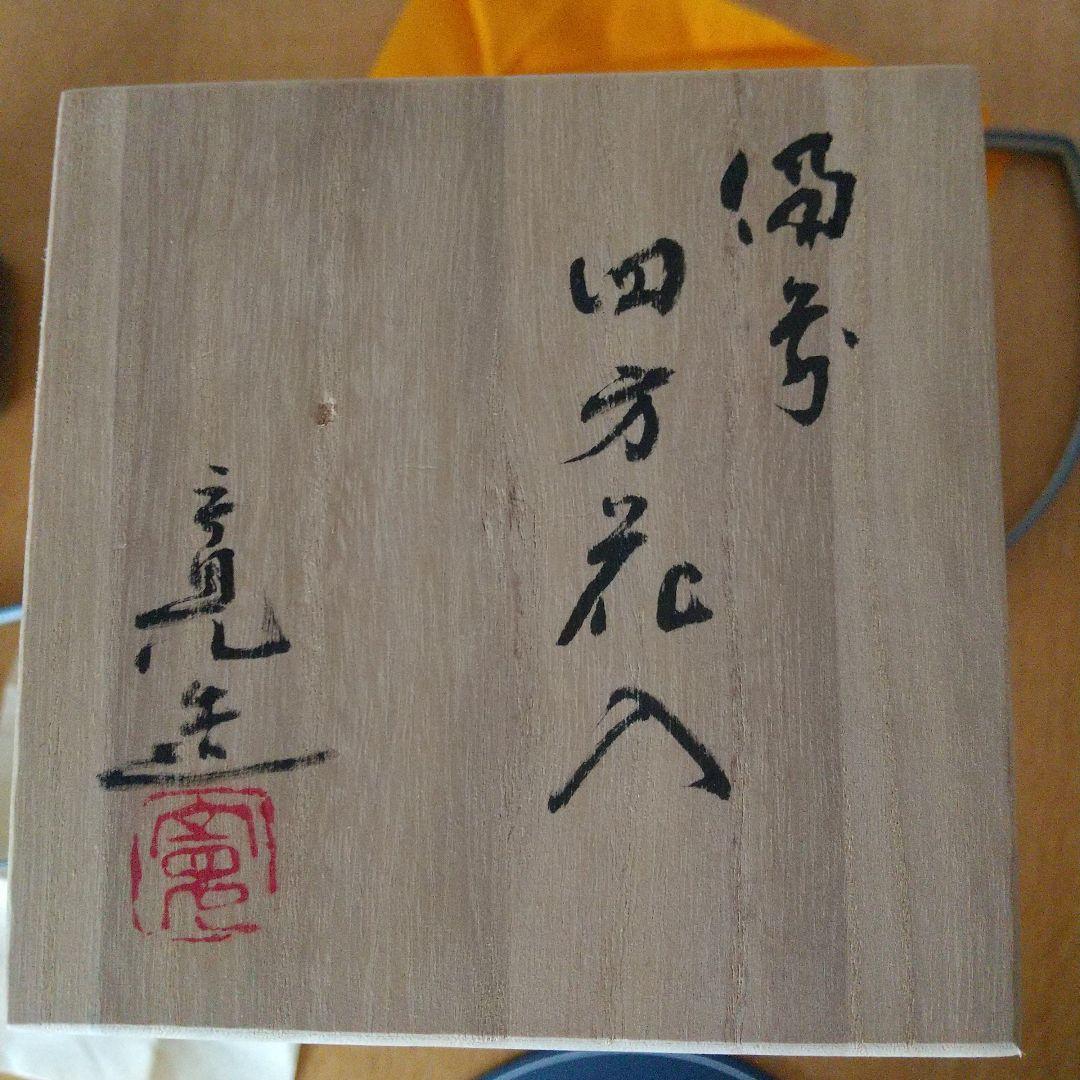 備前
四方花入
寛造